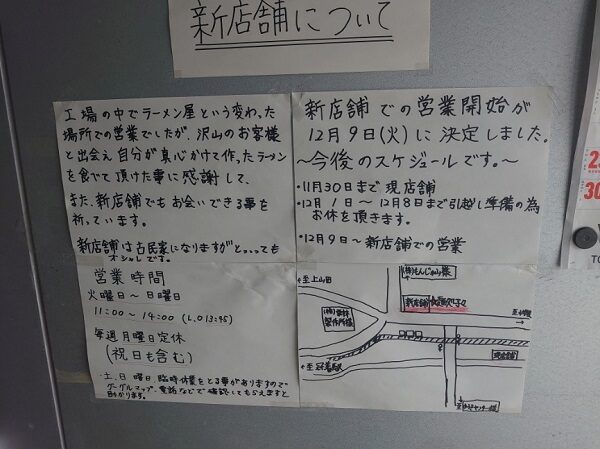 新店舗について
工場の中でラーメン屋という変わった
場所での営業でしたが、沢山のお客様
と出会え自分が真心かけて作ったラーメン
を食べて頂けた事に感謝して、
また、新店舗でもお会いできる事を
祈っています。
新店舗は古民家になりますがとってっても
オシャレです。
新店舗での営業開始が
12月9日(火)に決定しました。
〜今後のスケジュールです。〜
・11月30日まで現店舗
・12月1日〜12月8日まで引越し準備の為
お休を頂きます。
・12月9日〜新店舗での営業
営業時間
火曜日〜日曜日
11:00〜14:00 (L.O13:45)
毎週月曜日定休
(祝日も含む)
・土、日曜日、臨時休業をとる事がありますので
グーグルマップ、電話などで確認してもらえますと
助かります。
←至上山田
新店舗
製作所様
←至冠着駅
現店舗